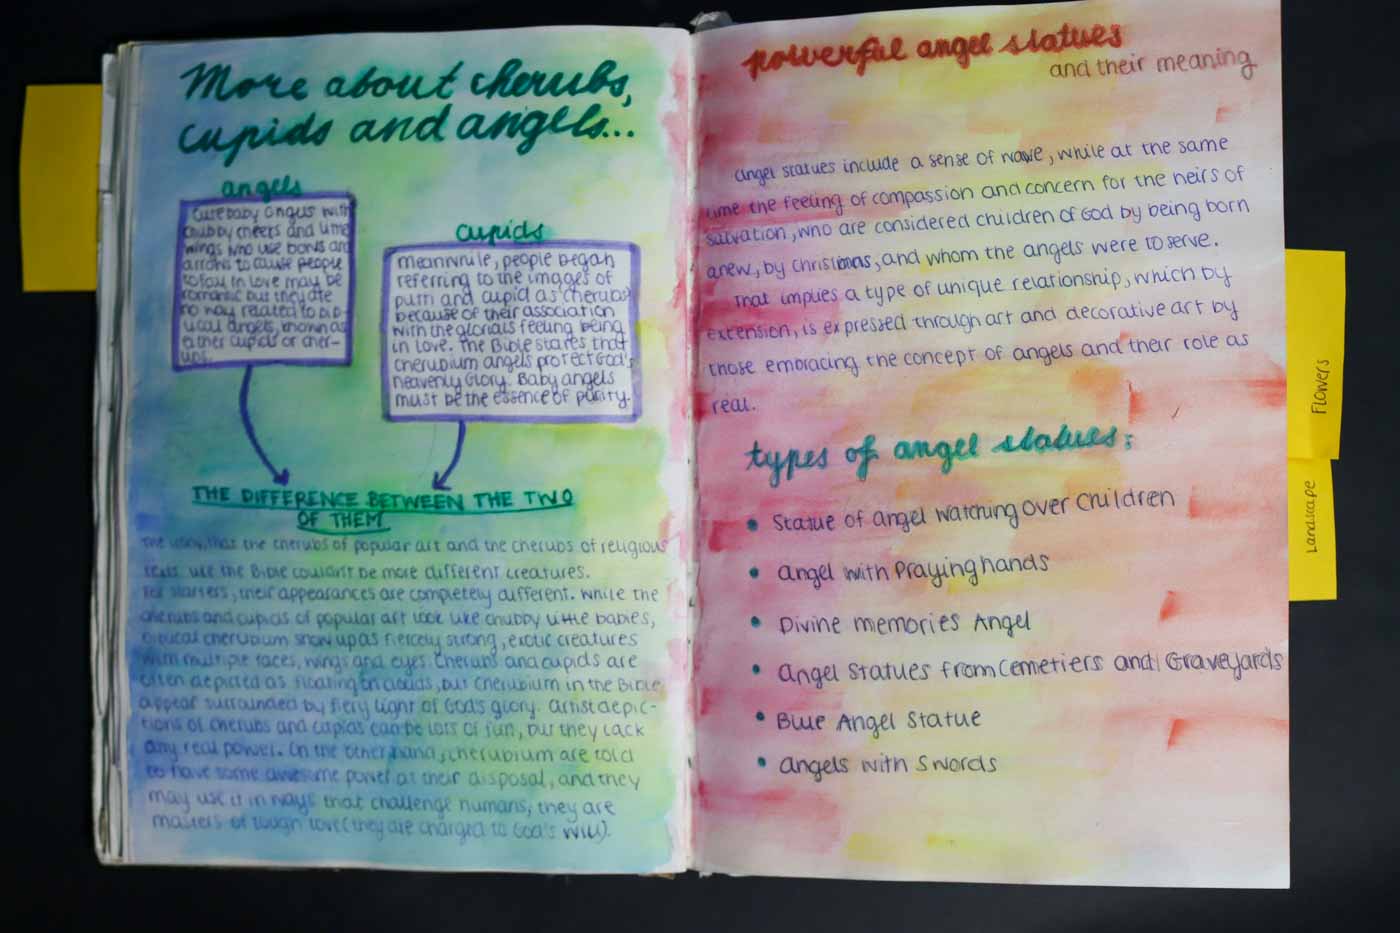 More about cherubs,
cupids and angels...
angels
Cute baby angles with
chubby cheers and little
wings who use bows and
arrows to cause people
to fall in love may be
romantic but they are
no way related to bib-
lical angels, known as
either cupids or cher-
ubs.
cupids
meanwhile, people began
referring to the images of
putti and cupid as 'cherubs'
because of their association
with the glorious feeling being
in love. The Bible states that
cherubium angels protect God's
heavenly Glory. Baby angels
must be the essence of purity.
THE DIFFERENCE BETWEEN THE TWO
OF THEM
that the cherubs of popular art and the cherubs of religious
texts like the Bible couldn't be more different creatures.
For starters, their appearances are completely different. While the
cherubs and cupids of popular art look like chubby little babies,
biblical cherubium show up as fiercely strong, exotic creatures
with multiple faces, wings and eyes. Cherubs and cupids are
often depicted as floating on clouds, but Cherubium in the Bible
appear surrounded by fiery light of God's glory. Artist depic-
tions of cherubs and cupids can be lots of fun, but they lack
any real power. On the other hand, cherubium are told
to have some awesome power at their disposal, and they
may use it in ways that challenge humans, they are
masters of tough love (they are charged to God's will).
powerful angel statues
and their meaning
angel statues include a sense of , while at the same
time the feeling of compassion and concern for the heirs of
salvation, who are considered children of God by being born
anew, by christmas, and whom the angels were to serve.
That implies a type of unique relationship, which by
extension, is expressed through art and decorative art by
those embracing the concept of angels and their role as
real.
types of angel statues:
• Statue of angel watching over Children
• angel with Praying hands
• Divine memories Angel
• Angel Statues from Cemetiers and Graveyards
• Blue Angel Statue
• angels with Swords
Flowers
Landscape